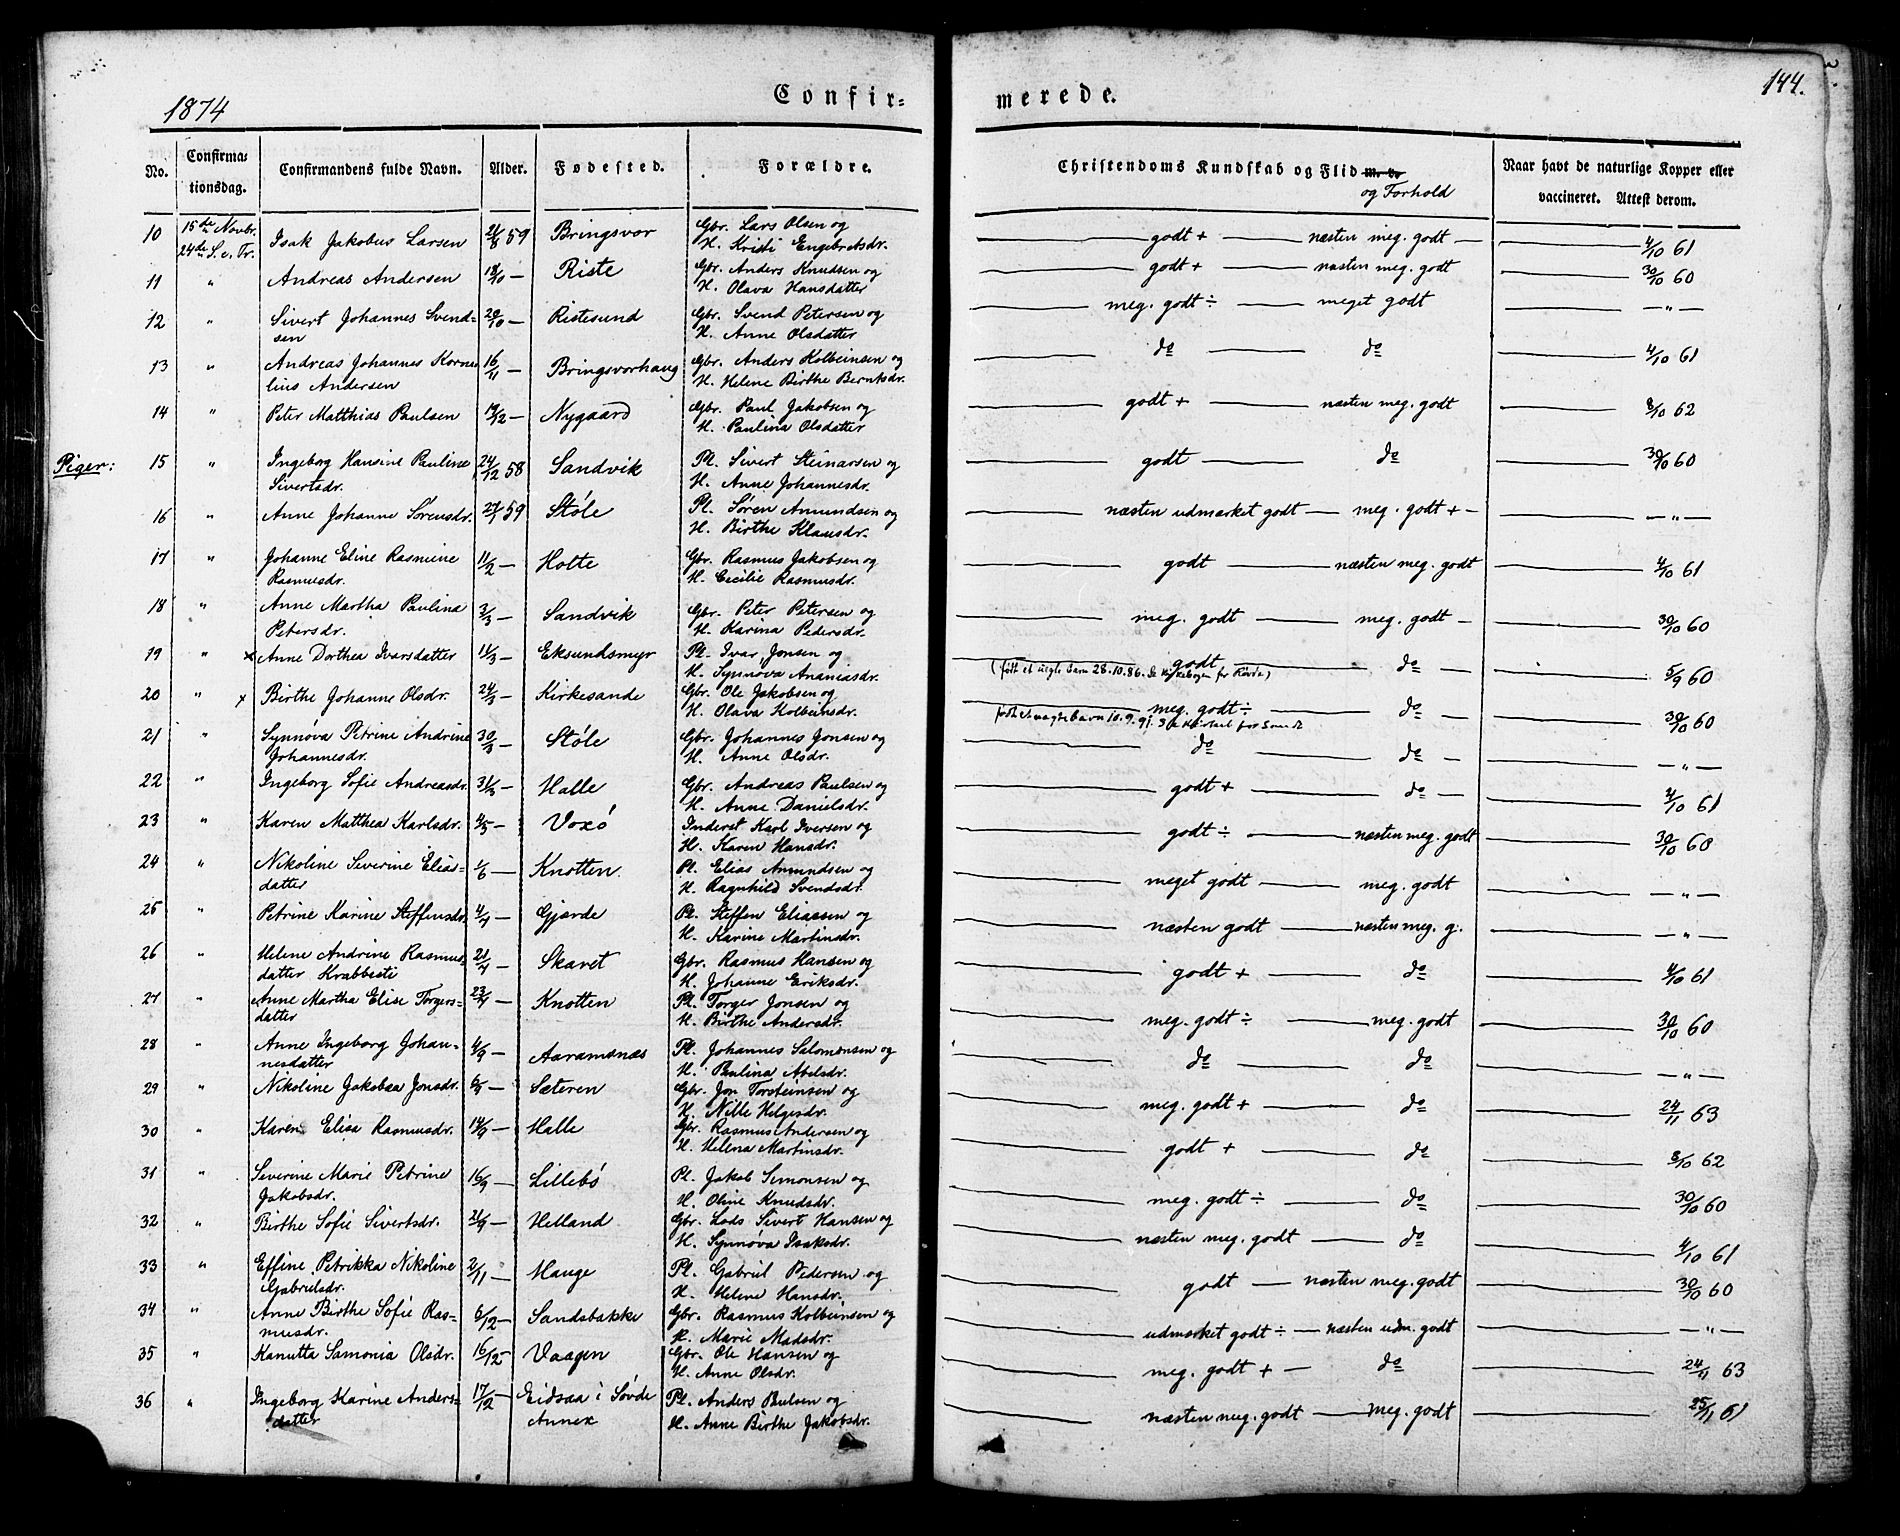 144.
1874
Confir= merede.
No. Confirma= tionsdag. Confirmandens fulde Navn. Alder. Fødested. Forældre. Christendoms Kundskab og Flid m. v. og Forhold Naar havt de naturlige Kopper eller vaccineret. Attest derom.
10 15de Novbr. 24de S. e. Tr. Isak Jakobus Larsen 59 Bringsvor Gbr. Lars Olsen og H. Kristi Engebretsdr. godt + næsten meg. godt 4/10 61
11 " Andreas Andersen 18/10 — Riste Gbr. Anders Knudsen og H. Olava Hansdatter godt + næsten meg. godt 30/10 60
12 " Sivert Johannes Svend= sen 20/10 — Ristesund Gbr. Svend Petersen og H. Anne Olsdatter meg. godt ÷ meget godt — " —
13 " Andreas Johannes Korne= lius Andersen 16/11 — Bringsvorhaug Gbr. Anders Kolbeinsen og H. Helene Birthe Berntsdr. do do 4/10 61
14 " Peter Matthias Paulsen 19/12 — Nygaard Gbr. Paul Jakobsen og H. Paulina Olsdatter godt + næsten meg. godt 8/10 62
Piger: 15 " Ingeborg Hansine Pauline Sivertsdr. 24/12 58 Sandvik Pl. Sivert Steinarsen og H. Anne Johannesdr. godt do 30/10 60
16 " Anne Johanne Sørensdr. 27/1 59 Støle Pl. Søren Amundsen og H. Birthe Klausdr. næsten udmærket godt meg. godt + — " —
17 " Johanne Eline Rasmine Rasmusdr. 11/2 — Holte Gbr. Rasmus Jakobsen og H. Cecilie Rasmusdr. godt næsten meg. godt 4/10 61
18 " Anne Martha Paulina Petersdr. 3/3 — Sandvik Gbr. Peter Petersen og H. Karina Pedersdr. meg. godt meg. godt 30/10 60
19 " x Anne Dorthea Ivarsdatter 11/3 — Eksundsmyr Pl. Ivar Jonsen og H. Synnøva Ananiasdr. godt do 5/9 60
(født et uegte barn 28.10.86. se Kirkebogen for Rövde)
20 " x Birthe Johanne Olsdr. 24/3 — Kirkesande Gbr. Ole Jakobsen og H. Olava Kolbeinsdr. meg. godt ÷ do 30/10 60
21 " Synnøva Petrine Andrine Johannesdr. 30/3 — Støle Gbr. Johannes Jonsen og H. Anne Olsdr. do do — " —
22 " Ingeborg Sofie Andreasdr. 31/3 — Halle Gbr. Andreas Paulsen og H. Anne Danielsdr. godt + do 4/10 61
23 " Karen Matthea Karlsdr. 4/5 — Voxö Inderst Karl Iversen og H. Karen Hansdr. godt ÷ næsten meg. godt 30/10 60
24 " Nikoline Severine Elias= datter 1/6 — Knotten Pl. Elias Amundsen og H. Ragnhild Svendsdr. meget godt meg. godt — " —
25 " Petrine Karine Steffensdr. 4/7 — Gjærde Pl. Steffen Eliassen og H. Karine Martinsdr. næsten godt næsten meg. g. — " —
26 " Helene Andrine Rasmus= datter Krabbesti 21/7 — Skaret Gbr. Rasmus Hansen og H. Johanne Eriksdr. godt + do 4/10 61
27 " Anne Martha Elise Torgers= datter 23/7 — Knotten Pl. Torger Jonsen og H. Birthe Andersdr. meg. godt ÷ meg. godt 30/10 60
28 " Anne Ingeborg Johan= nesdatter 4/9 — Aaramsnæs Pl. Johannes Salomonsen og H. Paulina Abelsdr. do do — " —
29 " Nikoline Jakobea Jonsdr. 6/9 — Sæteren Gbr. Jon Torsteinsen og H. Nille Helgesdr. meg. godt + do 24/11 63
30 " Karen Elisa Rasmusdr. 14/9 — Halle Gbr. Rasmus Andersen og H. Helena Martinsdr. godt + do 8/10 62
31 " Severine Marie Petrine Jakobsdr. 16/9 — Lillebö Pl. Jakob Simonsen og H. Oline Knudsdr. meg. godt ÷ do 30/10 60
32 " Birthe Sofie Sivertsdr. 21/9 — Helland Gbr. Lods Sivert Hansen og H. Synnøva Isaksdr. næsten meg. godt do 4/10 61
33 " Effine Petrikka Nikoline Gabrielsdr. 2/11 — Hauge Pl. Gabriel Pedersen og H. Helene Hansdr. godt næsten meg. godt 30/10 60
34 " Anne Birthe Sofie Ras= musdr. 6/12 — Sandsbakke Gbr. Rasmus Kolbeinsen og H. Marie Madsdr. udmærket godt ÷ næsten udm. godt — " —
35 " Kanutta Samonia Olsdr. 16/12 — Vaagen Gbr. Ole Hansen og H. Anne Olsdr. meg. godt + do 24/11 63
36 " Ingeborg Karine Anders= datter 17/12 — Eidsaa i Søvde Annex Pl. Anders Paulsen og H. Anne Birthe Jakobsdr. næsten meg. godt meg. godt 25/11 61